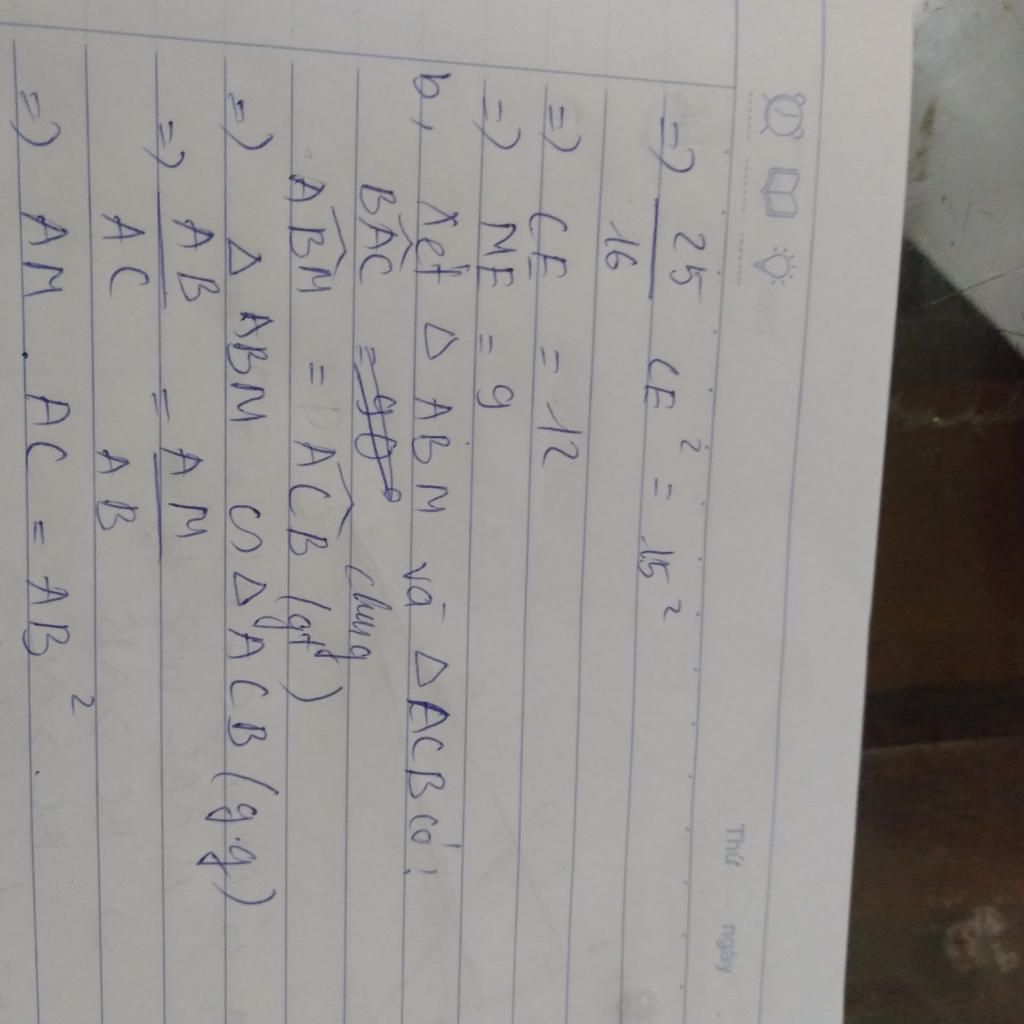 Thứ ngày
=> 25/16 CE² = 15²
=> CE = 12
=> ME = 9
b, Xét Δ ABM và Δ ACB có:
BAC chung
ABM = ACB (gt)
=> Δ ABM ∽ Δ ACB (g.g)
=> AB/AC = AM/AB
=> AM . AC = AB²